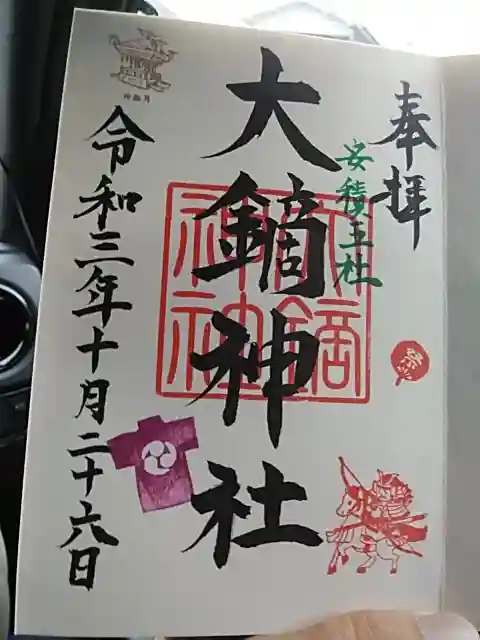 奉拝
安積三社
大鏑神社
大鏑神社
祭
令和三年十月二十六日